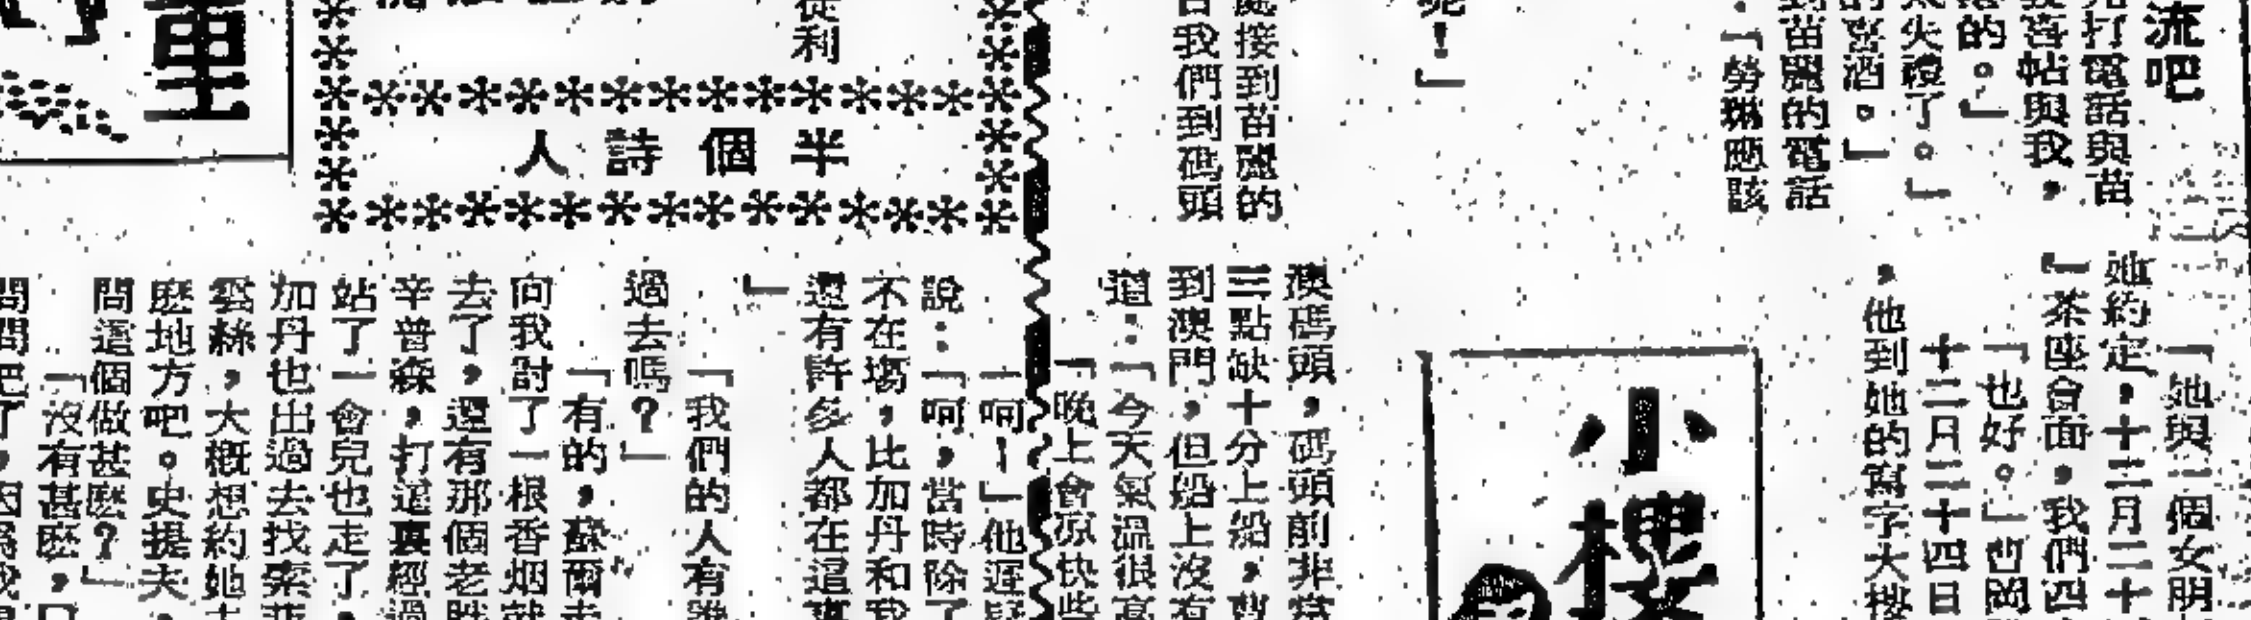 流吧
打電話與苗
喜帖與我，
的。」
失禮了。」
的喜酒。」
到苗麗的電話
：「勞琳應該
呢！」
接到苗麗的
我們到碼頭
「她與一個女朋
她約定，十二月二十
」茶座會面，我們四
「也好。」
十二月二十四日
，他到她的寫字大樓
小樓
澳碼頭，碼頭前非常
三點缺十分上船，
到澳門，但船上沒有
道：「今天氣溫很高
「晚上會凉快些
從利
半個詩人
「呵！」他遲疑
說：「呵，當時除了
不在塲，比加丹和我
還有許多人都在這裏
」
「我們的人有誰
過去嗎？」
「有的，蘇爾走
向我討了一根香烟就
去了，還有那個老
辛普森，打這裏經過
站了一會兒也走了，
加丹也出過去找索菲
雲絲，大槪想約她去
麽地方吧。史提夫，
問這個做甚麽？」
「沒有甚麽，只
問問吧了，因爲我
里